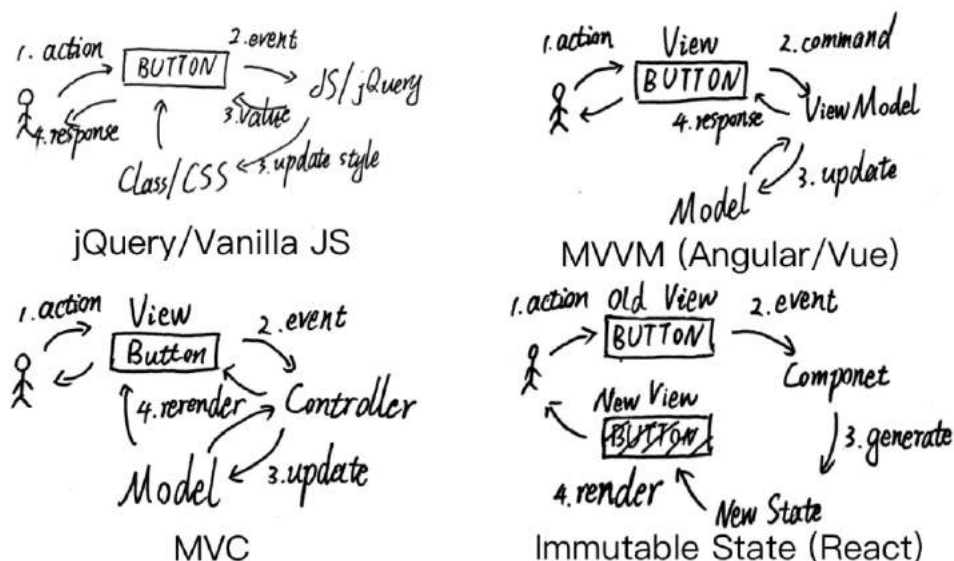 1. action
BUTTON
2. event
JS/jQuery
3. value
4. response
3. update style
Class/CSS
jQuery/Vanilla JS
1. action
View
BUTTON
2. command
View Model
4. response
3. update
Model
MVVM (Angular/Vue)
1. action
View
Button
2. event
4. rerender
Controller
3. update
Model
MVC
1. action
Old View
BUTTON
2. event
Componet
New View
BUTTON
3. generate
4. render
New State
Immutable State (React)